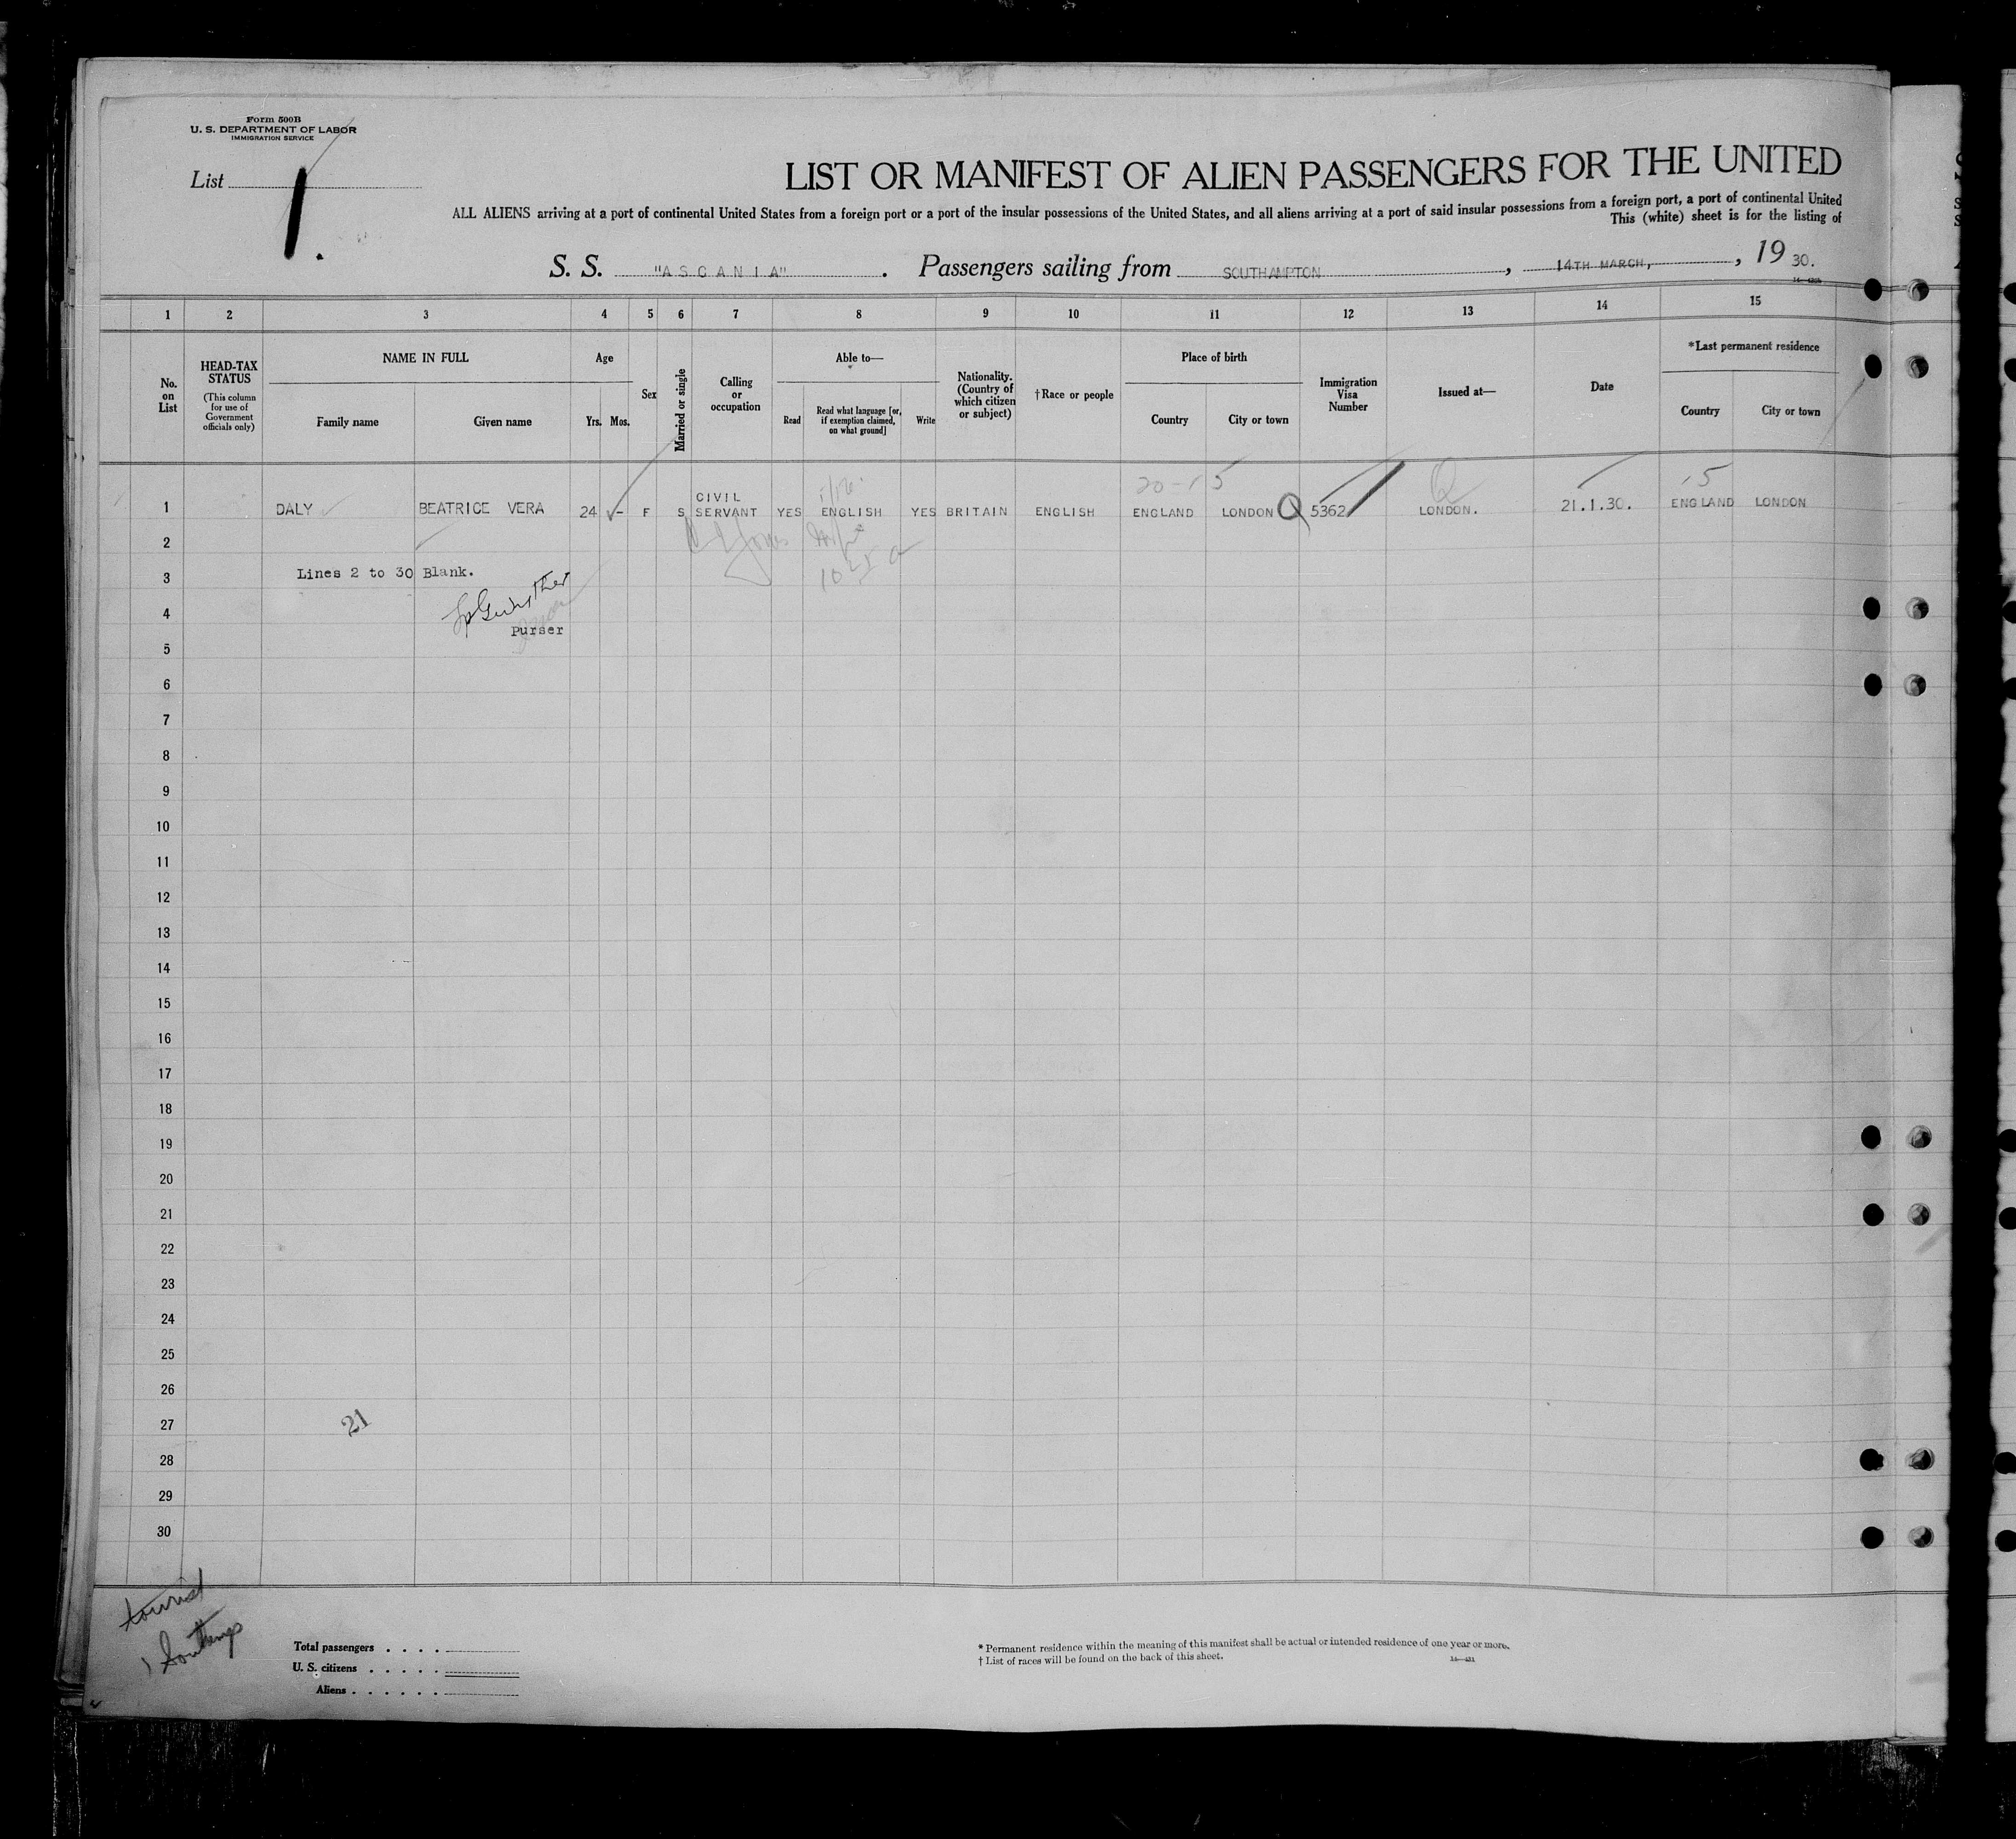 Form 500B
U. S. DEPARTMENT OF LABOR
IMMIGRATION SERVICE
List 1.
LIST OR MANIFEST OF ALIEN PASSENGERS FOR THE UNITED
ALL ALIENS arriving at a port of continental United States from a foreign port or a port of the insular possessions of the United States, and all aliens arriving at a port of said insular possessions from a foreign port, a port of continental United
This (white) sheet is for the listing of
S. S. "ASCANIA". Passengers sailing from SOUTHAMPTON, 14TH MARCH, 1930.
1 2 3 4 5 6 7 8 9 10 11 12 13 14 15
No. on List
HEAD-TAX STATUS
(This column for use of Government officials only)
NAME IN FULL
Family name Given name
Age
Yrs. Mos.
Sex
Married or single
Calling or occupation
Able to—
Read Read what language [or, if exemption claimed, on what ground] Write
Nationality. (Country of which citizen or subject)
†Race or people
Place of birth
Country City or town
Immigration Visa Number
Issued at—
Date
*Last permanent residence
Country City or town
20-15 Q 15
1 DALY BEATRICE VERA 24 - F S CIVIL SERVANT YES ENGLISH YES BRITAIN ENGLISH ENGLAND LONDON Q 5362 LONDON. 21.1.30. ENGLAND LONDON
2
3 Lines 2 to 30 Blank.
4
Purser
5
6
7
8
9
10
11
12
13
14
15
16
17
18
19
20
21
22
23
24
25
26
27 21
28
29
30
tourist
1 Southamp
Total passengers . . . .
U. S. citizens . . . . .
Aliens . . . . . .
* Permanent residence within the meaning of this manifest shall be actual or intended residence of one year or more.
† List of races will be found on the back of this sheet.